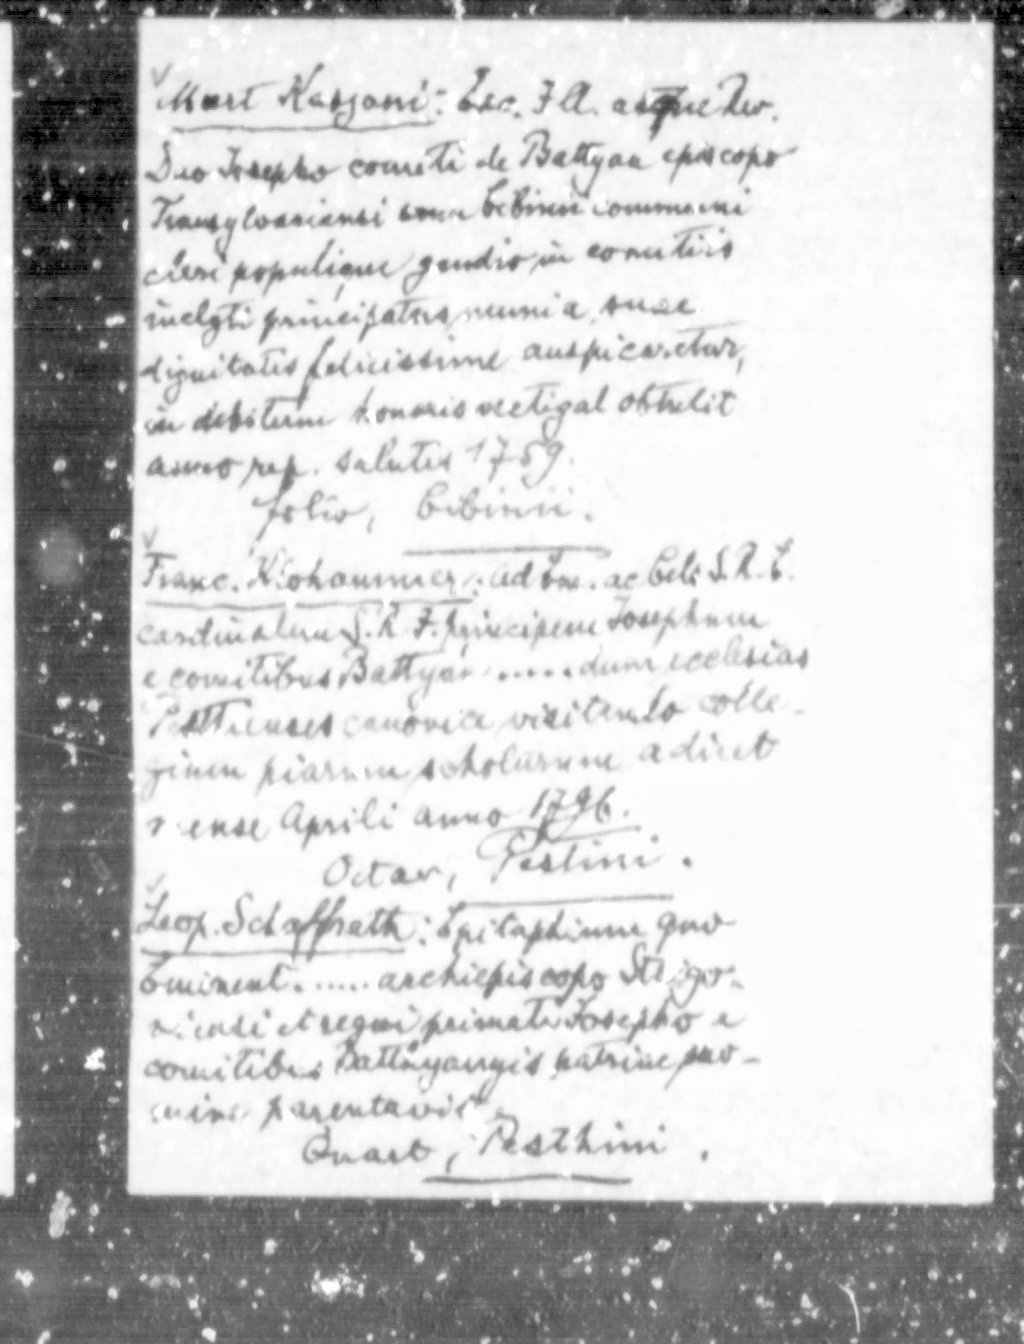 Mart Kaszoni: Exc. I A. atque Rev.
Dno Josepho comiti de Battyan episcopo
Transylvaniensi cum Cibinii communi
cleri populique gaudio in comitiis
inclyti principatus munia suae
dignitatis felicissime auspicaretur,
in debitum honoris vectigal obtulit
anno rep. salutis 1759.
folio, Cibinii.
Franc. : Ad Em. ac Cels S. R. E.
cardinalem S. R. I. principem Josephum
e comitibus Battyan ..... dum ecclesias
Pesthienses canonice visitando colle-
gium piarum scholarum adiret
mense Aprili anno 1796.
Octav, Pestini.
Leop. Schaffrath: Epitaphium quo
Eminent. ..... archiepiscopo Strigo-
niensi et regni primati Josepho e
comitibus Batthyanyis patriae
parentavit
Quart, Pesthini.